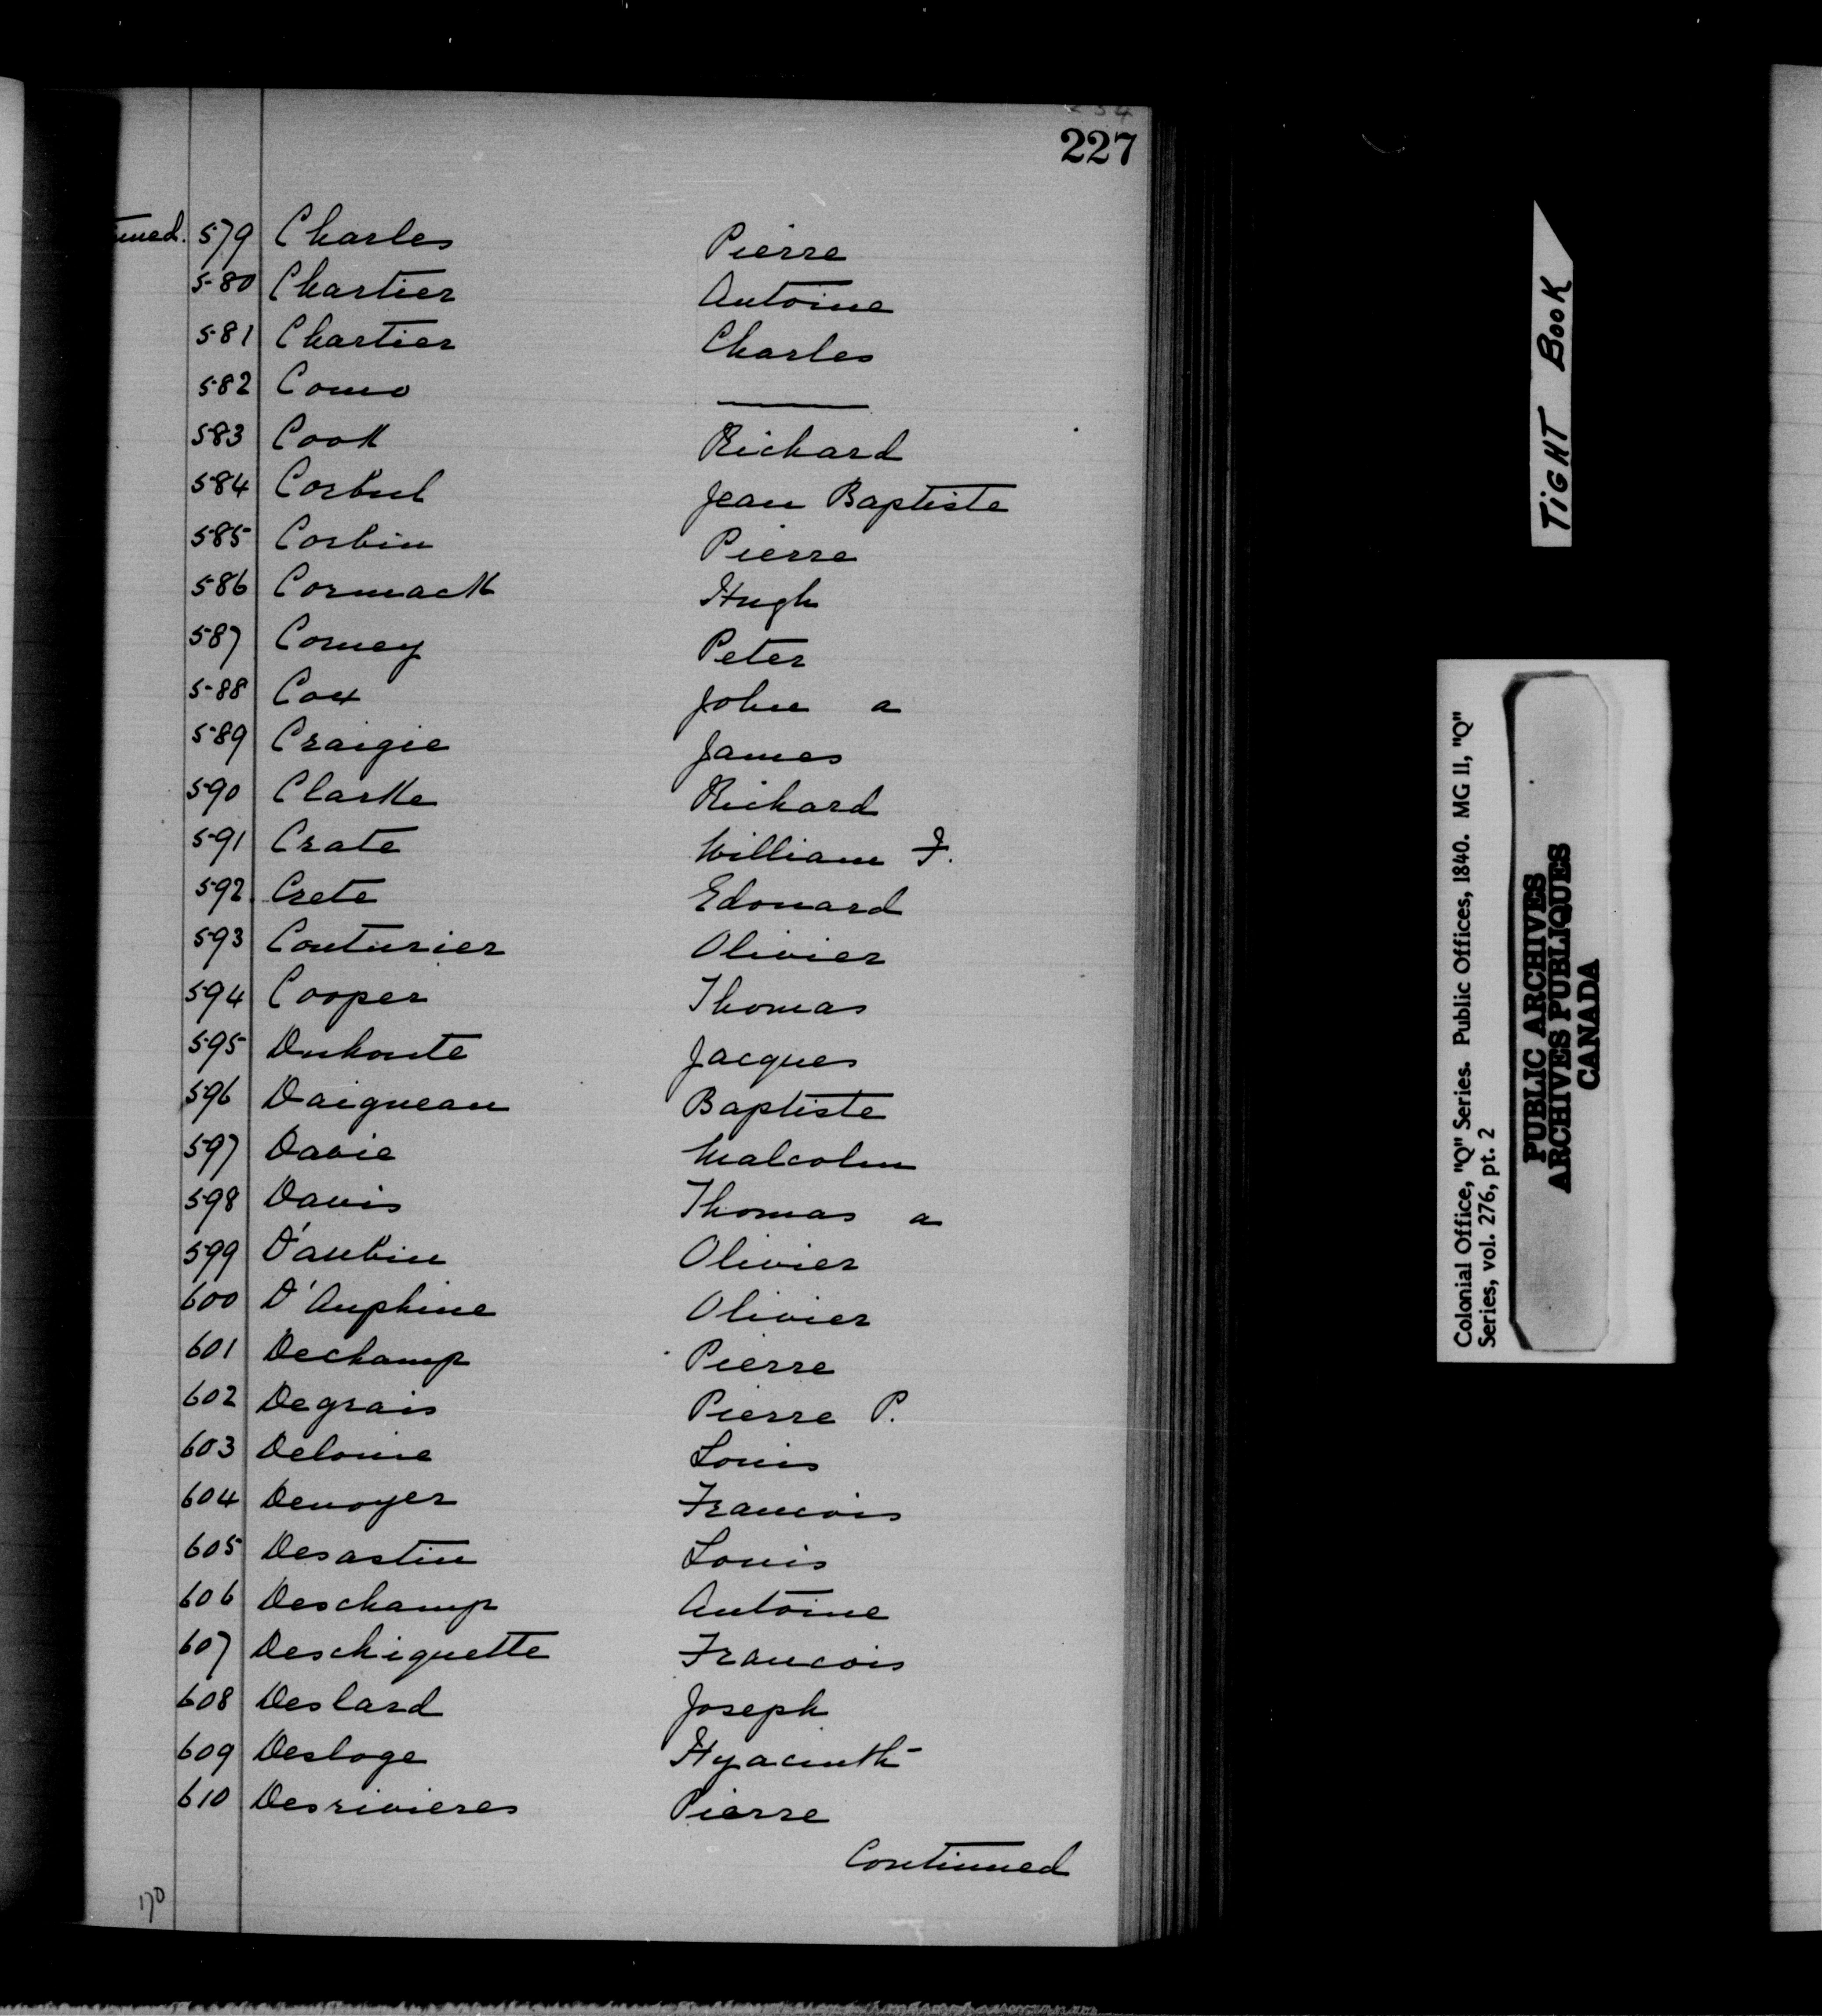 227
579 Charles Pierre
580 Chartier Antoine
581 Chartier Charles
582 Como ———
583 Cook Richard
584 Corbul Jean Baptiste
585 Corbin Pierre
586 Cormack Hugh
587 Corney Peter
588 Cox John a
589 Craigie James
590 Clarke Richard
591 Crate William F.
592 Crete Edouard
593 Couturier Olivier
594 Cooper Thomas
595 Duhoute Jacques
596 Daigneau Baptiste
597 Davie Malcolm
598 Davis Thomas a
599 D'aubin Olivier
600 D'Auphine Olivier
601 Dechamp Pierre
602 Degrais Pierre P.
603 Delouie Louis
604 Denoyer Francois
605 Desastin Louis
606 Deschamp Antoine
607 Deschiquette Francois
608 Deslard Joseph
609 Desloge Hyacinth
610 Desrivieres Pierre
Continued
170
TIGHT BOOK
Colonial Office, "Q" Series. Public Offices, 1840. MG 11, "Q"
Series, vol. 276, pt. 2
PUBLIC ARCHIVES
ARCHIVES PUBLIQUES
CANADA